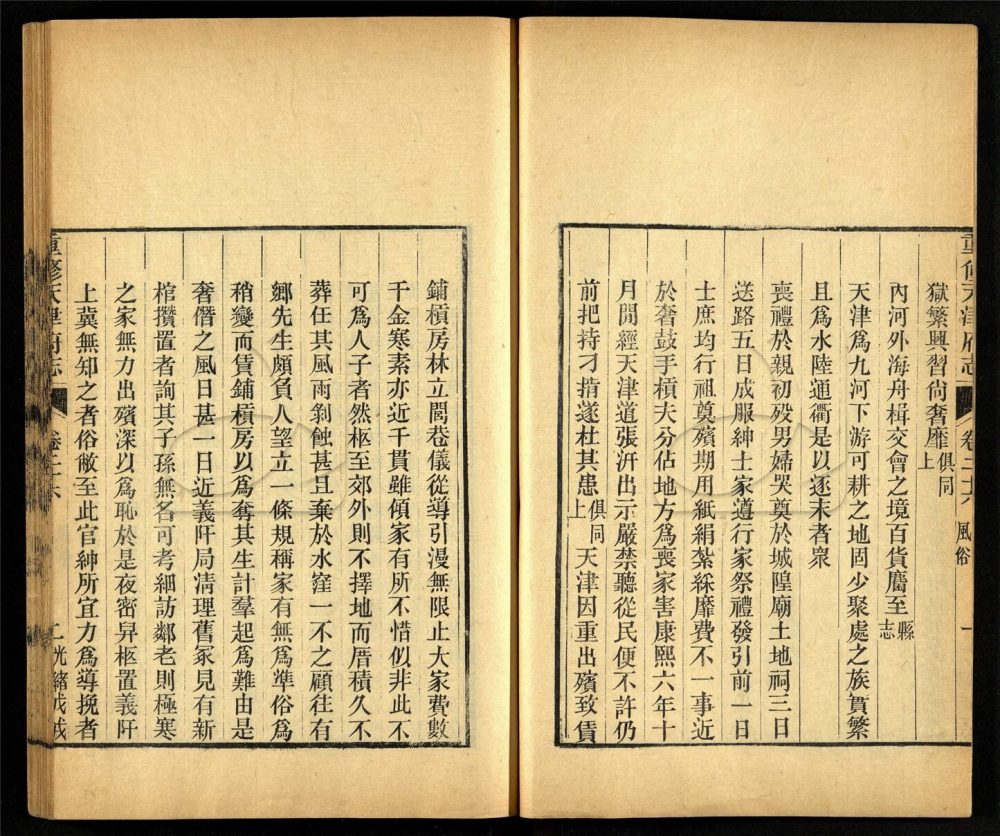 重修天津府志 卷二十六 風俗 一
獄繁興習尙奢靡俱同上
內河外海舟楫交會之境百貨麕至縣志
天津爲九河下游可耕之地固少聚處之族實繁
且爲水陸通衢是以逐末者衆
喪禮於親初殁男婦哭奠於城隍廟土地祠三日
送路五日成服紳士家遵行家祭禮發引前一日
士庶均行祖奠殯期用紙絹紮綵靡費不一事近
於奢鼓手槓夫分佔地方爲喪家害康熙六年十
月閒經天津道張汧出示嚴禁聽從民便不許仍
前把持刁揹遂杜其患俱同上天津因重出殯致賃
鋪槓房林立閭巷儀從導引漫無限止大家費數
千金寒素亦近千貫雖傾家有所不惜似非此不
可爲人子者然柩至郊外則不擇地而厝積久不
葬任其風雨剝蝕甚且棄於水窪一不之顧往有
鄉先生頗負人望立一條規稱家有無爲準俗爲
稍變而賃鋪槓房以爲奪其生計羣起爲難由是
奢僭之風日甚一日近義阡局淸理舊冢見有新
棺攢置者詢其子孫無名可考細訪鄰老則極寒
之家無力出殯深以爲恥於是夜密舁柩置義阡
上冀無知之者俗敝至此官紳所宜力爲導挽者
重修天津府志 卷二十六 二 光緒戊戌